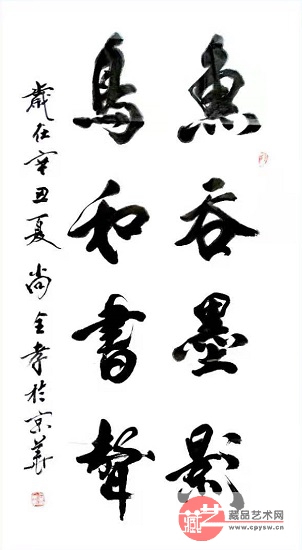 魚吞墨影
鳥和書聲
歲在辛丑夏尚全孝於京華
藏艺
藏品艺术网
www.cpysw.cn